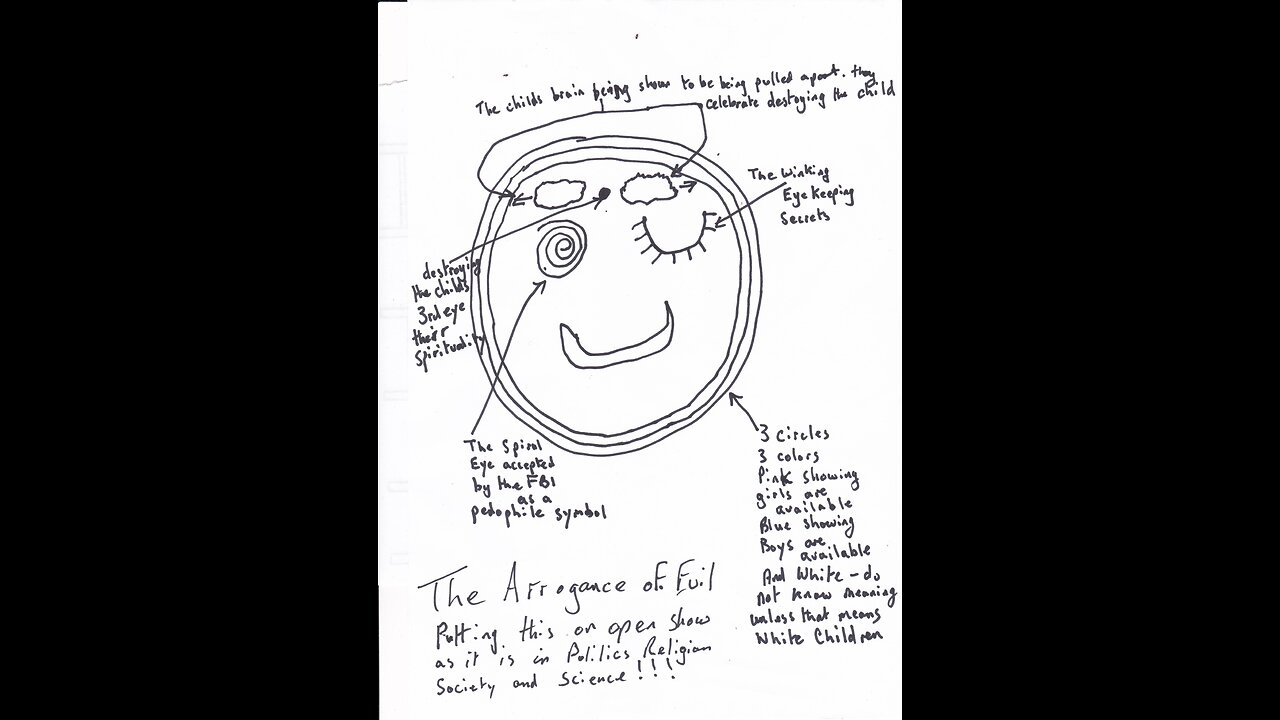 The childs brain being shown to be being pulled apart. they
celebrate destroying the child
The winking
Eye Keeping
Secrets
destroying
the child's
3rd eye
their
spirituality
The Spiral
Eye accepted
by the FBI
as a
pedophile symbol
3 circles
3 colors
Pink showing
girls are
available
Blue showing
Boys are
available
And White - do
not know meaning
unless that means
White Children
The Arrogance of Evil
Putting this on open show
as it is in Politics Religion
Society and Science!!!